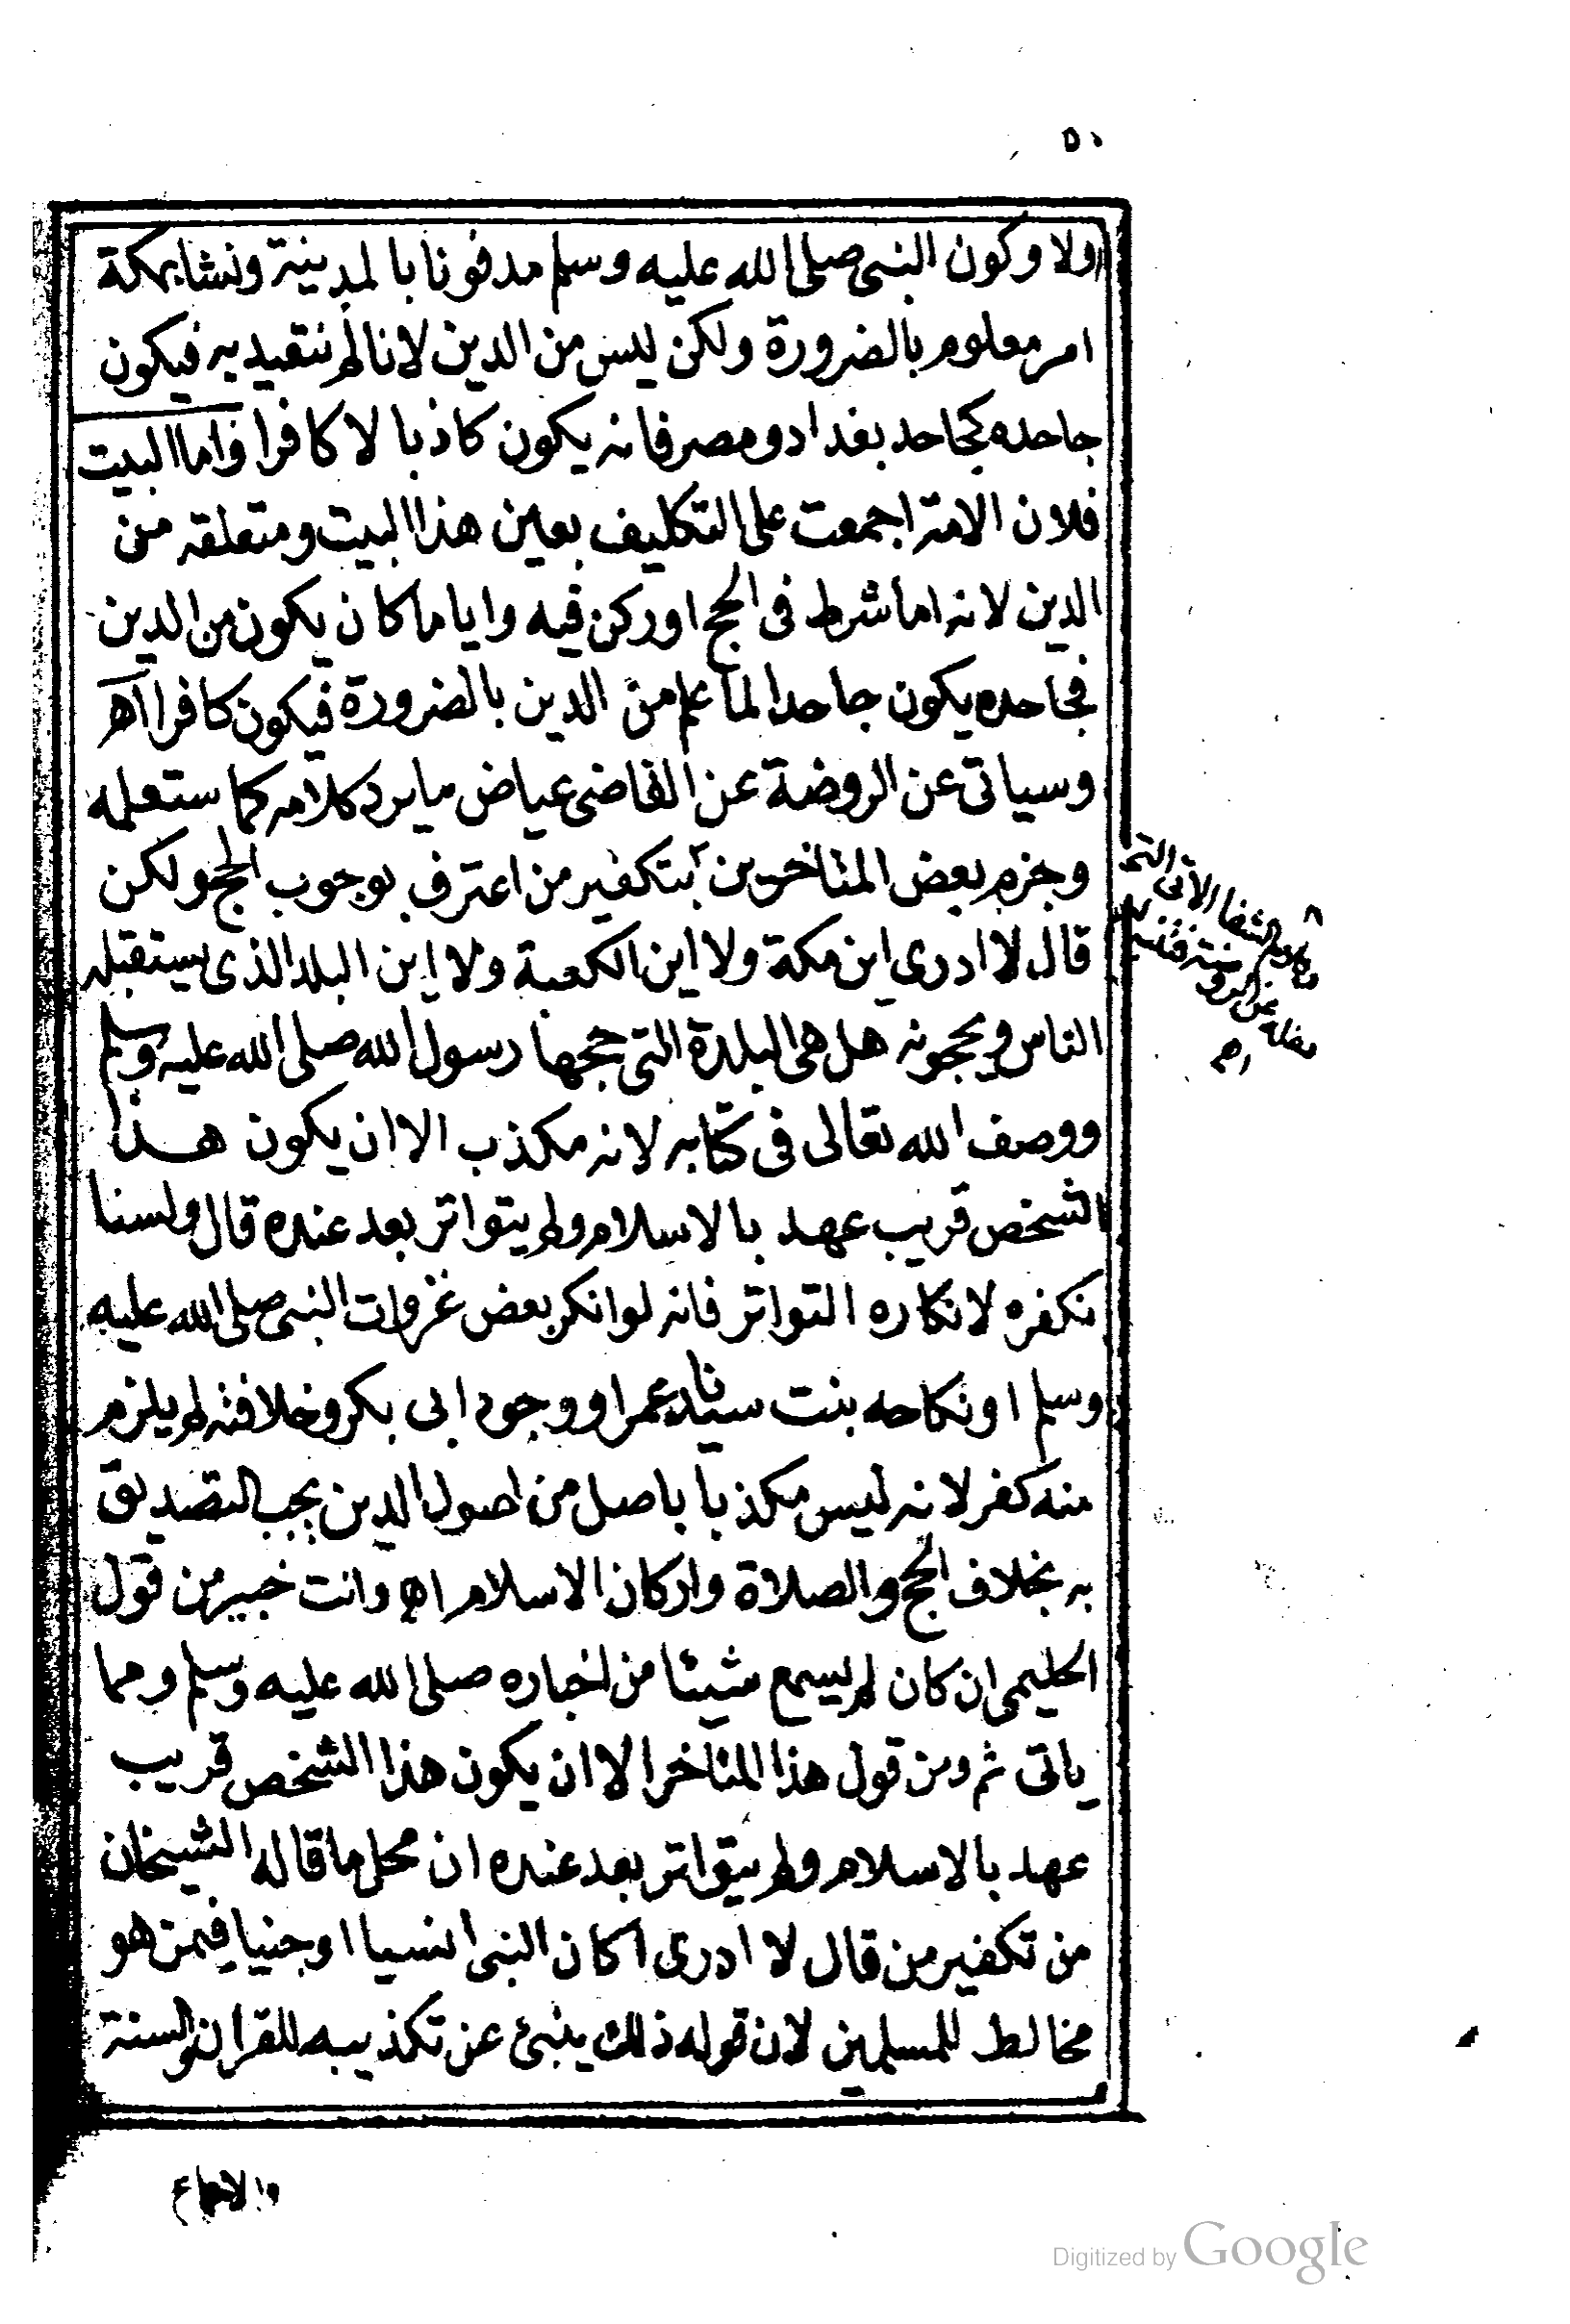 ٥٠
ولا وكون النبى صلى الله عليه وسلم مدفونا بالمدينة ونشا بمكة
امر معلوم بالضرورة ولكن ليس من الدين لانا لم نتقيد به فيكون
جاحده كجاحد بغداد ومصر فانه يكون كاذبا لا كافرا واما البيت
فلان الامة اجمعت على التكليف بعين هذا البيت ومتعلقه من
الدين لانه اما شرط فى الحج او ركن فيه وايا ما كان يكون من الدين
فجاحده يكون جاحدا لما علم من الدين بالضرورة فيكون كافرا اه
وسياتى عن الروضة عن القاضى عياض ما يرد كلامه كما ستعلمه
وجزم بعض المتاخرين بتكفير من اعترف بوجوب الحج ولكن
قال لا ادرى اين مكة ولا اين الكعبة ولا اين البلد الذى يستقبله
الناس ويحجونه هل هى البلدة التى حجها رسول الله صلى الله عليه وسلم
ووصف الله تعالى فى كتابه لانه مكذب الا ان يكون هذا
الشخص قريب عهد بالاسلام ولم يتواتر بعد عنده قال ولسنا
نكفره لانكاره التواتر فانه لو انكر بعض غزوات النبى صلى الله عليه
وسلم او نكاحه بنت سيدنا عمر او وجود ابى بكر وخلافته لم يلزم
منه كفر لانه ليس مكذبا باصل من اصول الدين يجب التصديق
به بخلاف الحج والصلاة واركان الاسلام اه وانت خبير من قول
الحليمى ان كان لم يسمع شيئا من اخباره صلى الله عليه وسلم ومما
ياتى ثم ومن قول هذا المتاخر الا ان يكون هذا الشخص قريب
عهد بالاسلام ولم يتواتر بعد عنده ان محل ما قاله الشيخان
من تكفير من قال لا ادرى اكان النبى انسيا او جنيا فيمن هو
مخالط للمسلمين لان قوله ذلك ينبئ عن تكذيبه للقران والسنة
والاجماع
الشفا الاتى
نقله عن الروضة
اه
Digitized by Google